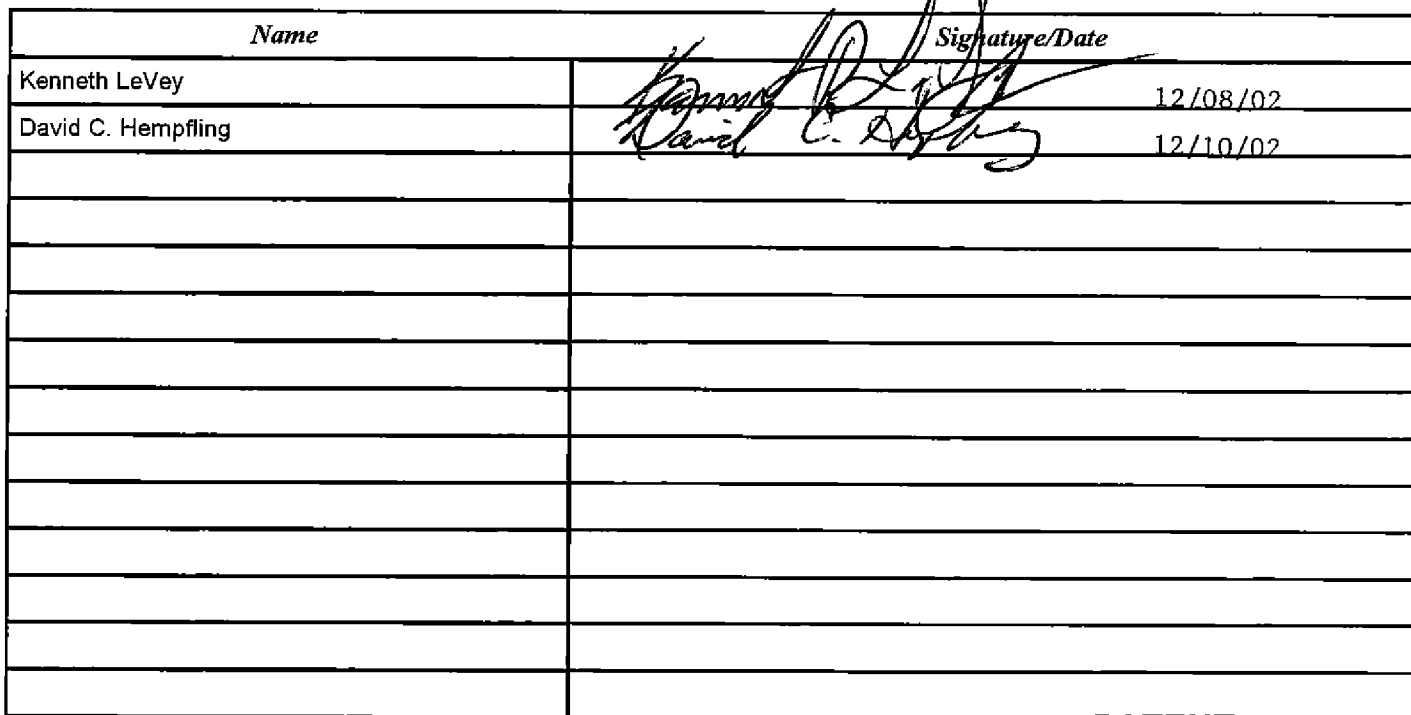 Name Signature/Date
Kenneth LeVey 12/08/02
David C. Hempfling David C. 12/10/02